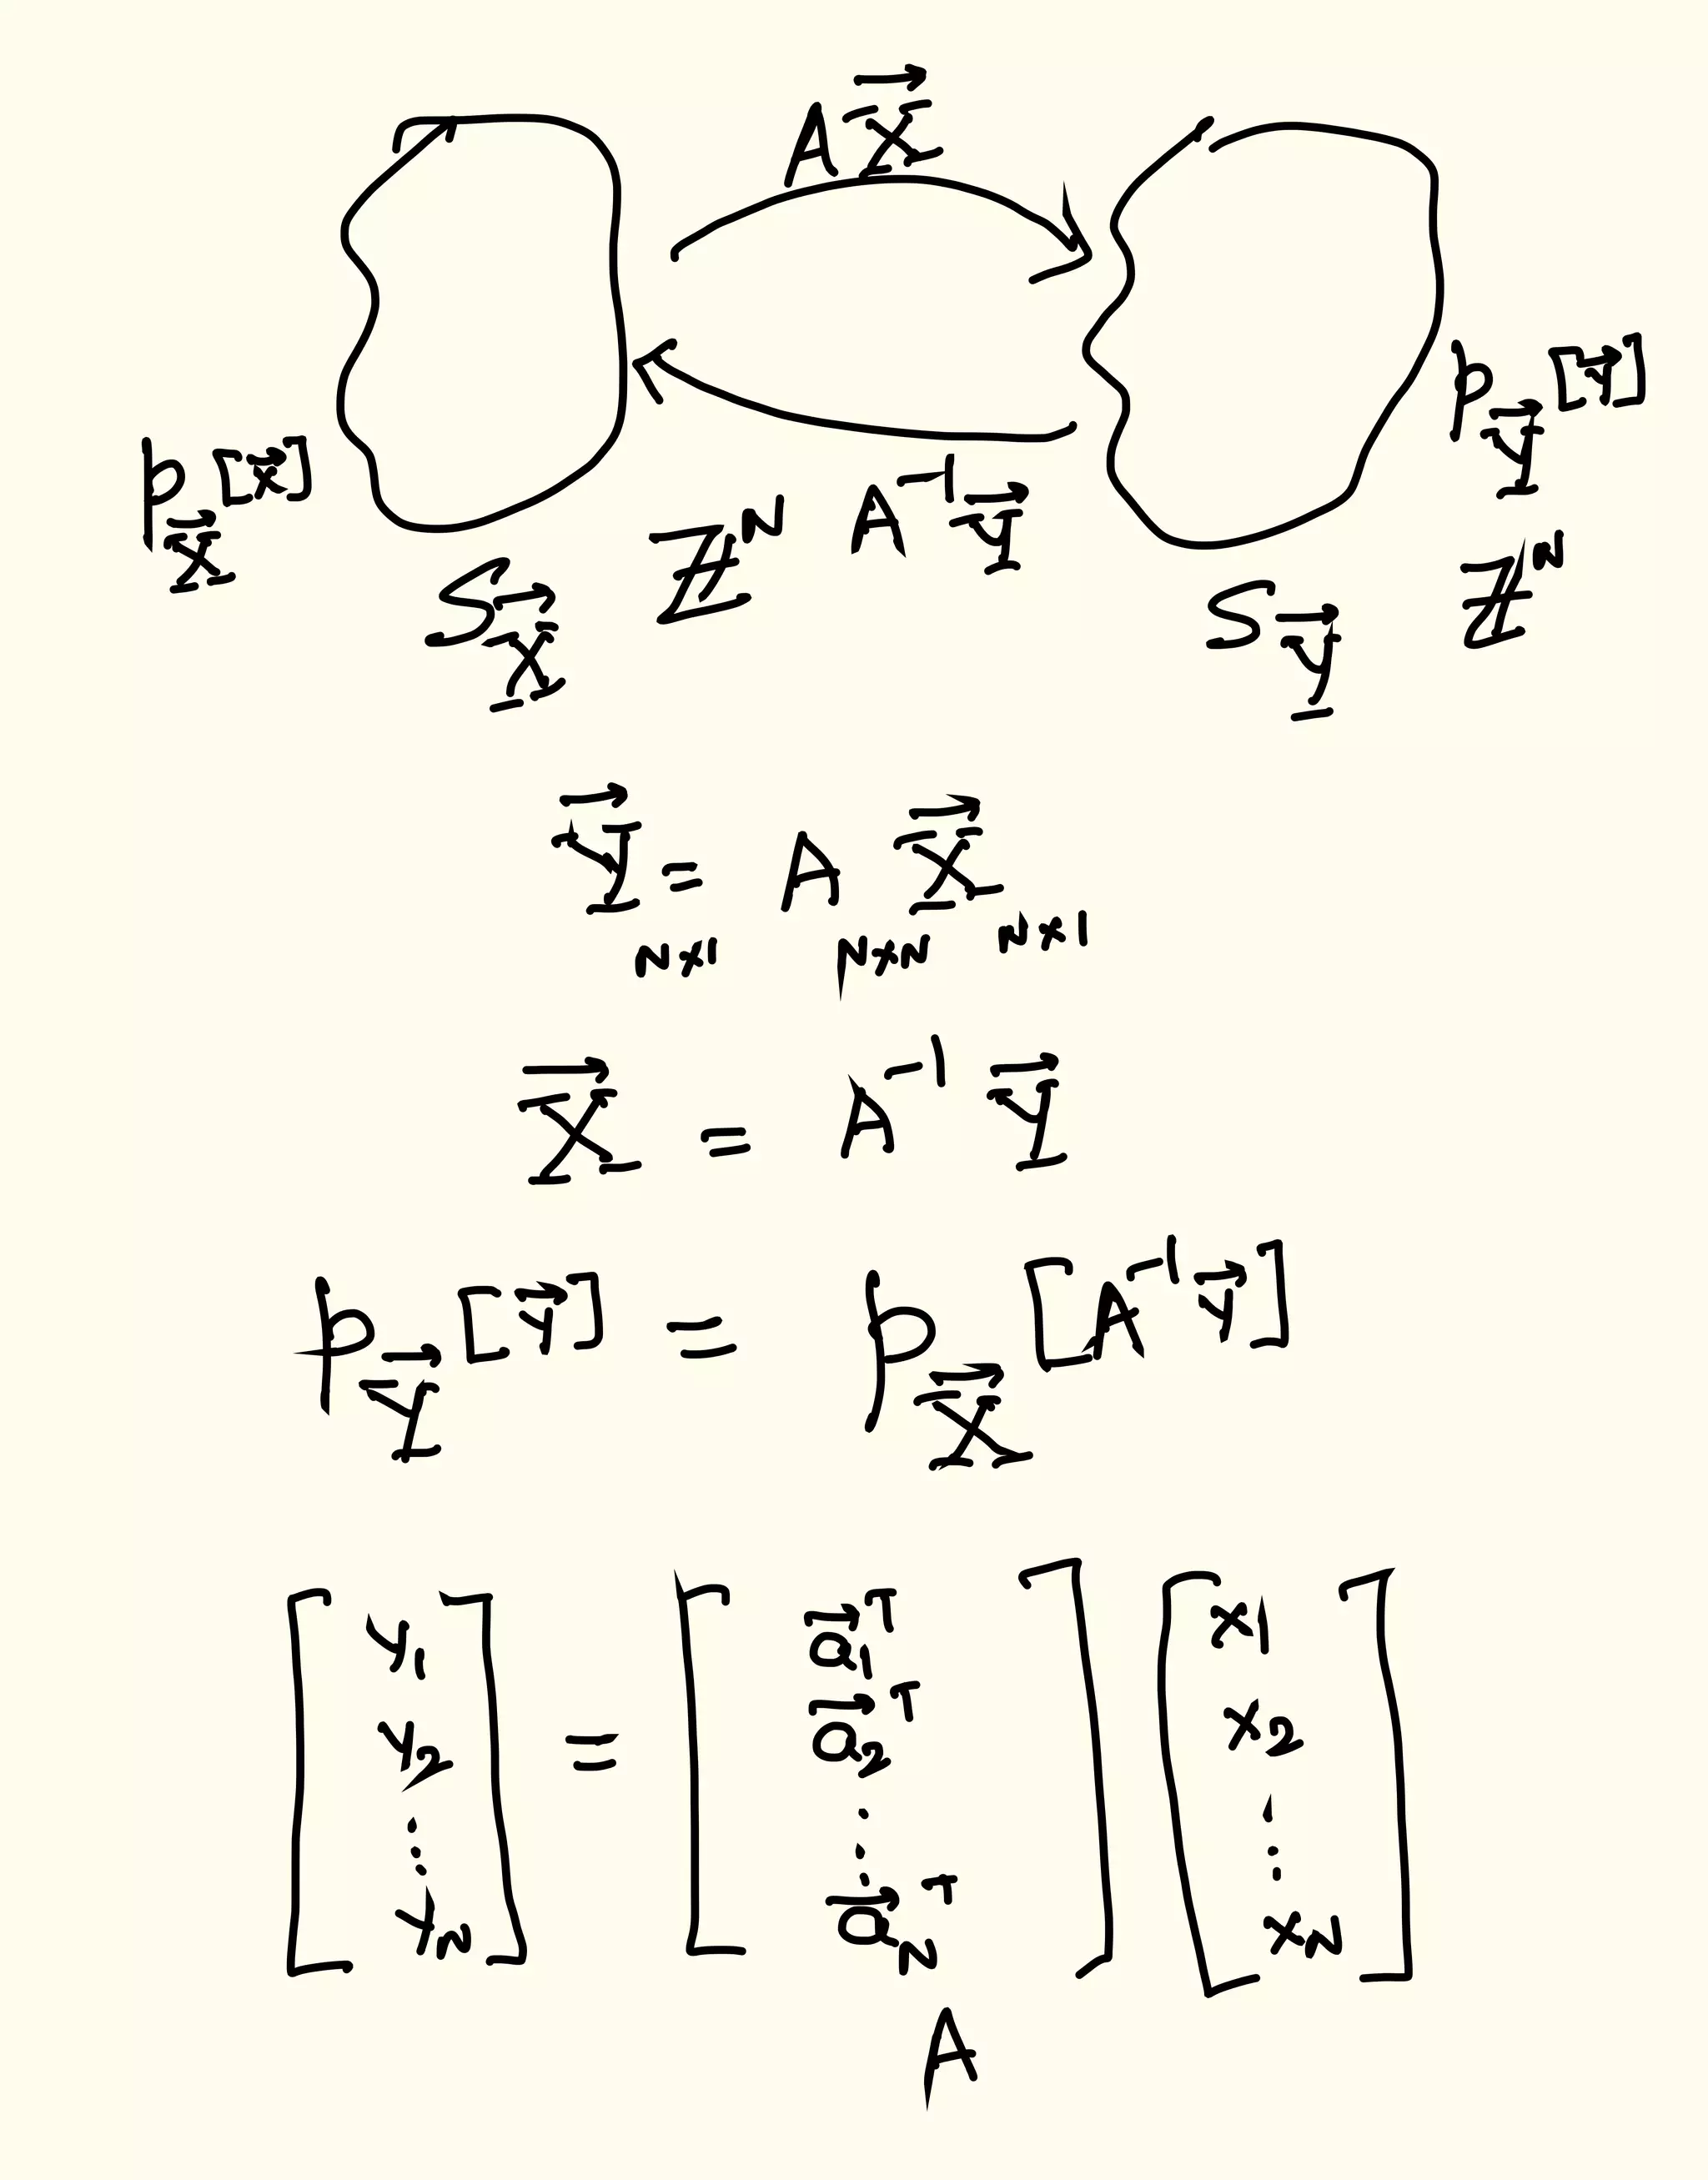 A X⃗
p_X⃗[x⃗]
S_X⃗ Z^N
A^-1 Y⃗
p_Y⃗[y⃗]
S_Y⃗ Z^N
Y⃗ = A X⃗
N×1 N×N N×1
X⃗ = A^-1 Y⃗
p_Y⃗[y⃗] = p_X⃗[A^-1 y⃗]
[y1 y2 ⋮ yN] = [a⃗1^T a⃗2^T ⋮ a⃗N^T] [x1 x2 ⋮ xN]
A